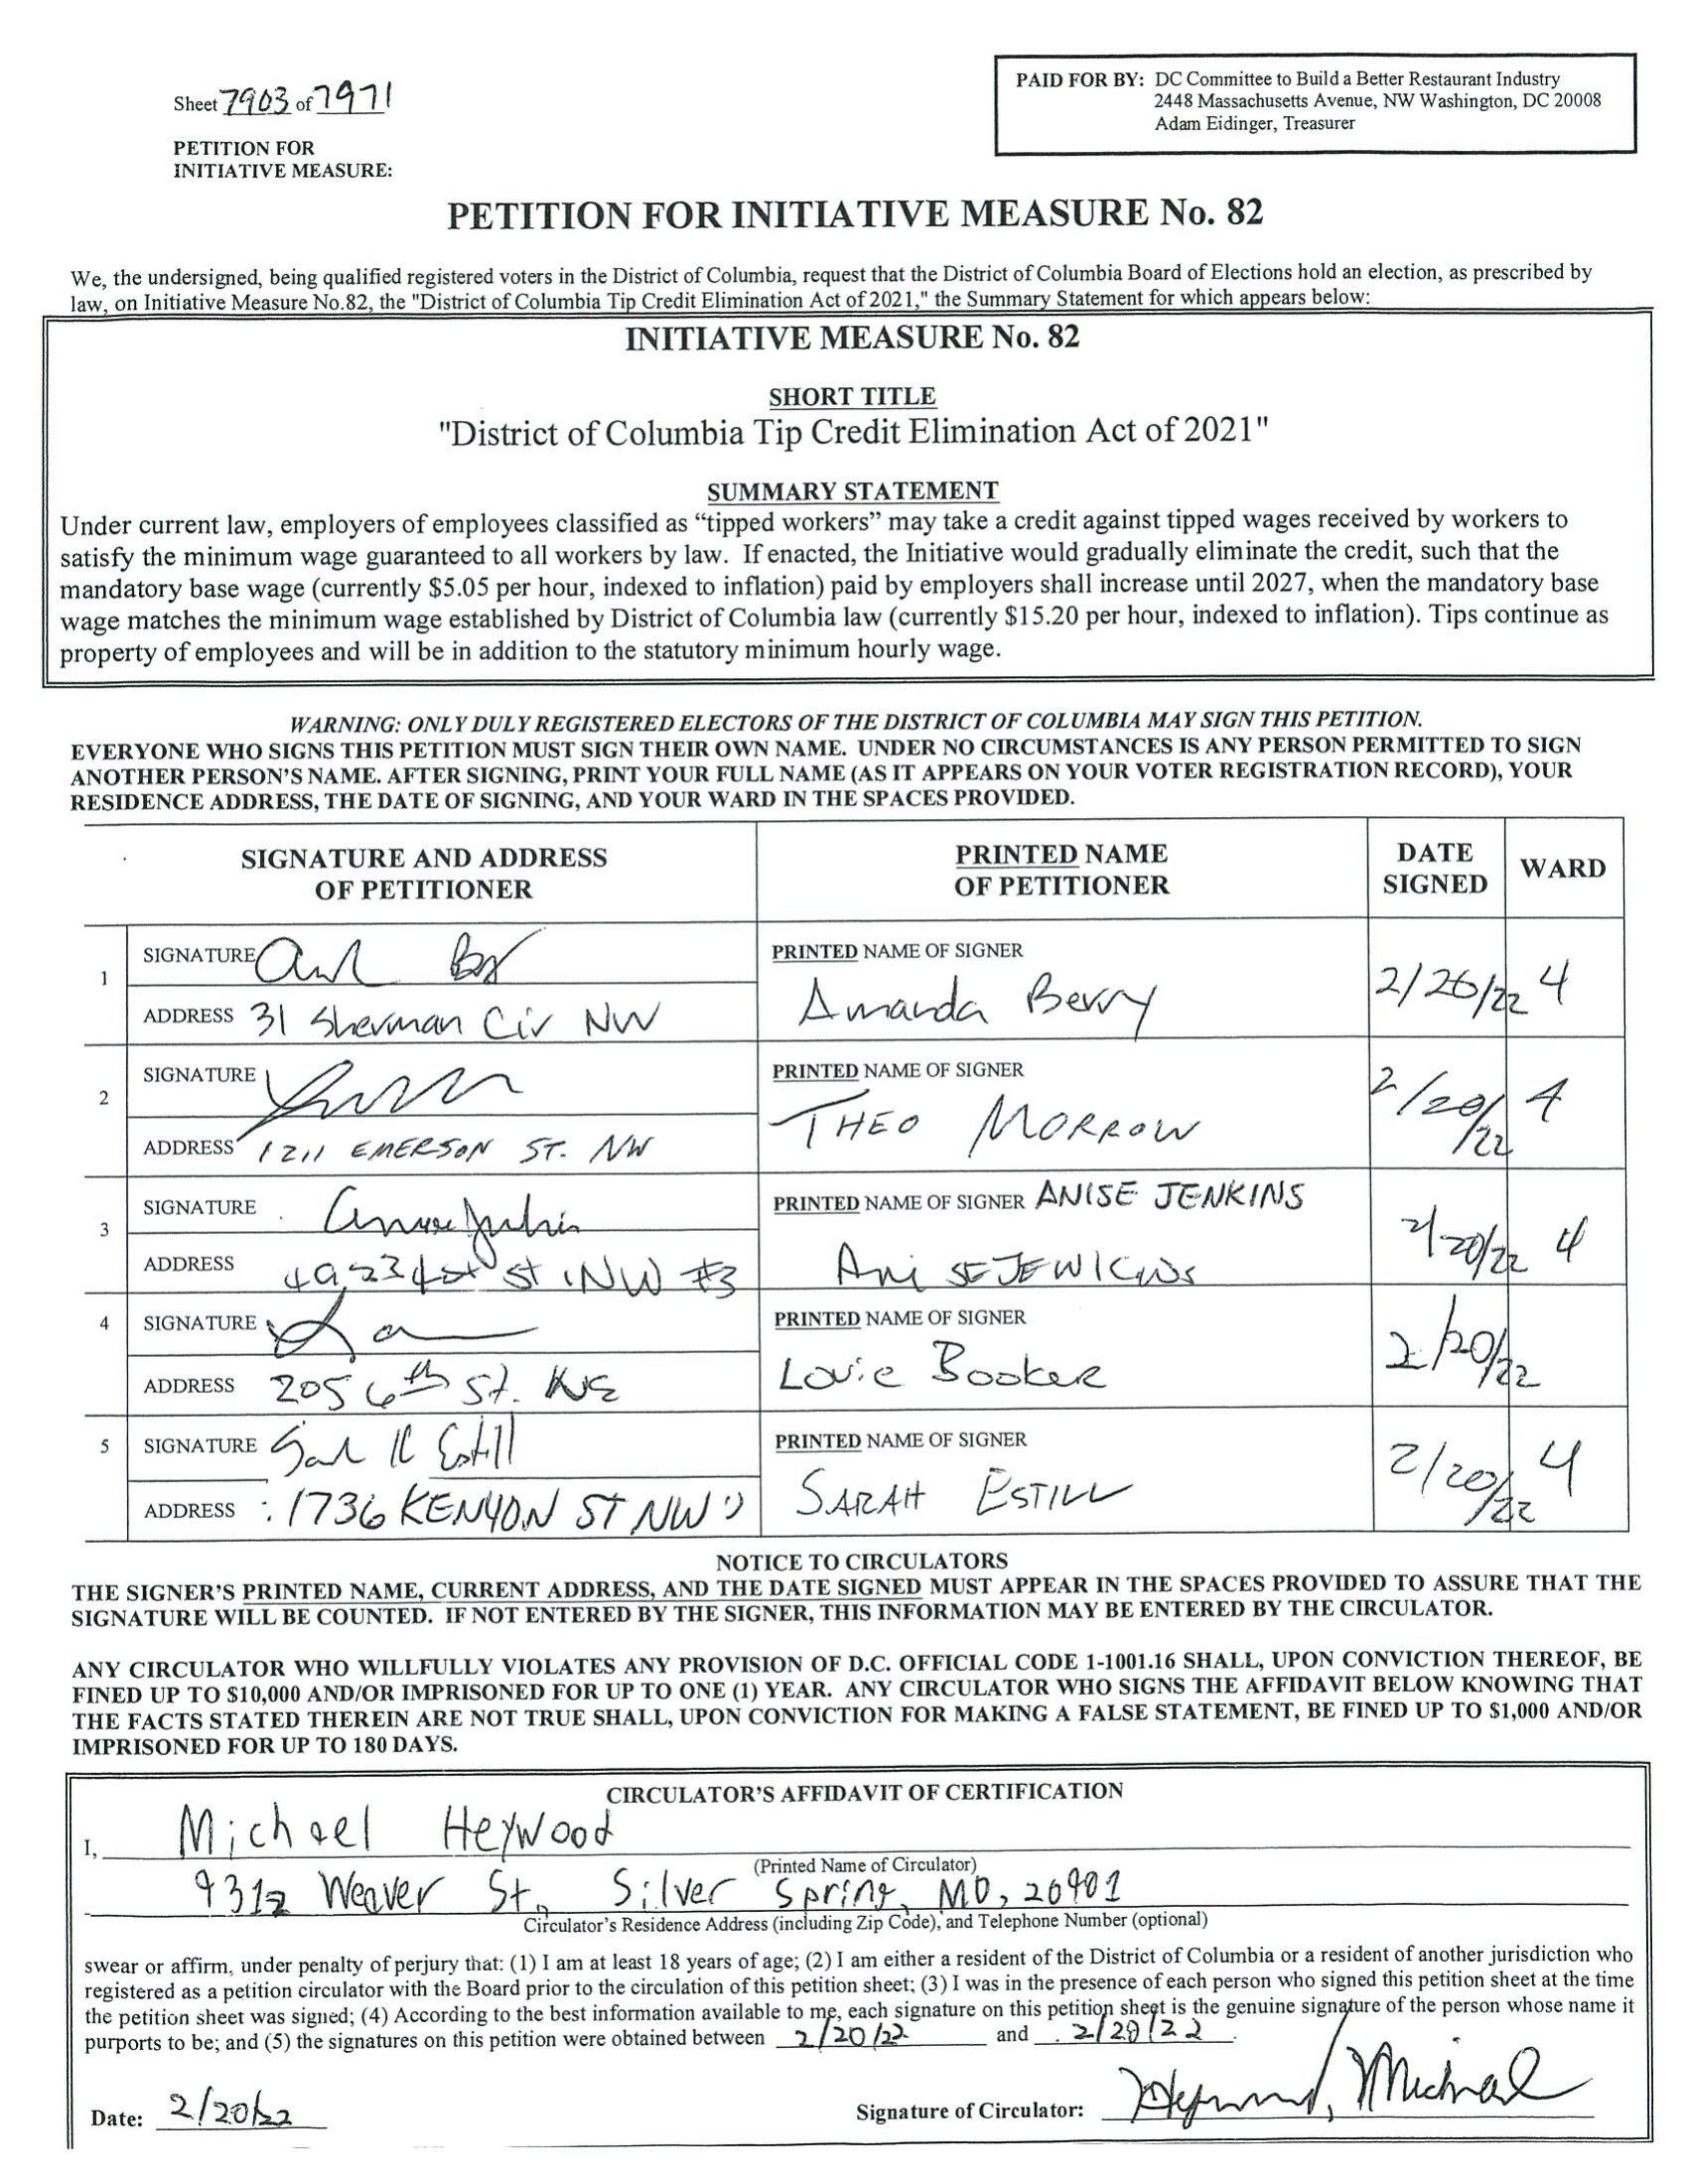 Sheet 7903 of 7971
PAID FOR BY: DC Committee to Build a Better Restaurant Industry
2448 Massachusetts Avenue, NW Washington, DC 20008
Adam Eidinger, Treasurer
PETITION FOR
INITIATIVE MEASURE:
PETITION FOR INITIATIVE MEASURE No. 82
We, the undersigned, being qualified registered voters in the District of Columbia, request that the District of Columbia Board of Elections hold an election, as prescribed by
law, on Initiative Measure No.82, the "District of Columbia Tip Credit Elimination Act of 2021," the Summary Statement for which appears below:
INITIATIVE MEASURE No. 82
SHORT TITLE
"District of Columbia Tip Credit Elimination Act of 2021"
SUMMARY STATEMENT
Under current law, employers of employees classified as “tipped workers” may take a credit against tipped wages received by workers to
satisfy the minimum wage guaranteed to all workers by law. If enacted, the Initiative would gradually eliminate the credit, such that the
mandatory base wage (currently $5.05 per hour, indexed to inflation) paid by employers shall increase until 2027, when the mandatory base
wage matches the minimum wage established by District of Columbia law (currently $15.20 per hour, indexed to inflation). Tips continue as
property of employees and will be in addition to the statutory minimum hourly wage.
WARNING: ONLY DULY REGISTERED ELECTORS OF THE DISTRICT OF COLUMBIA MAY SIGN THIS PETITION.
EVERYONE WHO SIGNS THIS PETITION MUST SIGN THEIR OWN NAME. UNDER NO CIRCUMSTANCES IS ANY PERSON PERMITTED TO SIGN
ANOTHER PERSON'S NAME. AFTER SIGNING, PRINT YOUR FULL NAME (AS IT APPEARS ON YOUR VOTER REGISTRATION RECORD), YOUR
RESIDENCE ADDRESS, THE DATE OF SIGNING, AND YOUR WARD IN THE SPACES PROVIDED.
SIGNATURE AND ADDRESS
OF PETITIONER
PRINTED NAME
OF PETITIONER
DATE
SIGNED
WARD
1
SIGNATURE
ADDRESS 31 Sherman Cir NW
PRINTED NAME OF SIGNER
Amanda Berry
2/20/22
4
2
SIGNATURE
ADDRESS 1211 EMERSON ST. NW
PRINTED NAME OF SIGNER
THEO MORROW
2/20/22
4
3
SIGNATURE
ADDRESS St NW #3
PRINTED NAME OF SIGNER ANISE JENKINS
ANISE JENKINS
2/20/22
4
4
SIGNATURE
ADDRESS 205 6th St. NE
PRINTED NAME OF SIGNER
Louie Booker
2/20/22
5
SIGNATURE Sarah K Estill
ADDRESS 1736 KENYON ST NW
PRINTED NAME OF SIGNER
SARAH ESTILL
2/20/22
4
NOTICE TO CIRCULATORS
THE SIGNER'S PRINTED NAME, CURRENT ADDRESS, AND THE DATE SIGNED MUST APPEAR IN THE SPACES PROVIDED TO ASSURE THAT THE
SIGNATURE WILL BE COUNTED. IF NOT ENTERED BY THE SIGNER, THIS INFORMATION MAY BE ENTERED BY THE CIRCULATOR.
ANY CIRCULATOR WHO WILLFULLY VIOLATES ANY PROVISION OF D.C. OFFICIAL CODE 1-1001.16 SHALL, UPON CONVICTION THEREOF, BE
FINED UP TO $10,000 AND/OR IMPRISONED FOR UP TO ONE (1) YEAR. ANY CIRCULATOR WHO SIGNS THE AFFIDAVIT BELOW KNOWING THAT
THE FACTS STATED THEREIN ARE NOT TRUE SHALL, UPON CONVICTION FOR MAKING A FALSE STATEMENT, BE FINED UP TO $1,000 AND/OR
IMPRISONED FOR UP TO 180 DAYS.
CIRCULATOR'S AFFIDAVIT OF CERTIFICATION
I, Michael Heywood
(Printed Name of Circulator)
9312 Weaver St, Silver Spring, MD, 20901
Circulator's Residence Address (including Zip Code), and Telephone Number (optional)
swear or affirm, under penalty of perjury that: (1) I am at least 18 years of age; (2) I am either a resident of the District of Columbia or a resident of another jurisdiction who
registered as a petition circulator with the Board prior to the circulation of this petition sheet; (3) I was in the presence of each person who signed this petition sheet at the time
the petition sheet was signed; (4) According to the best information available to me, each signature on this petition sheet is the genuine signature of the person whose name it
purports to be; and (5) the signatures on this petition were obtained between 2/20/22 and 2/20/22.
Date: 2/20/22
Signature of Circulator: Heywood, Michael